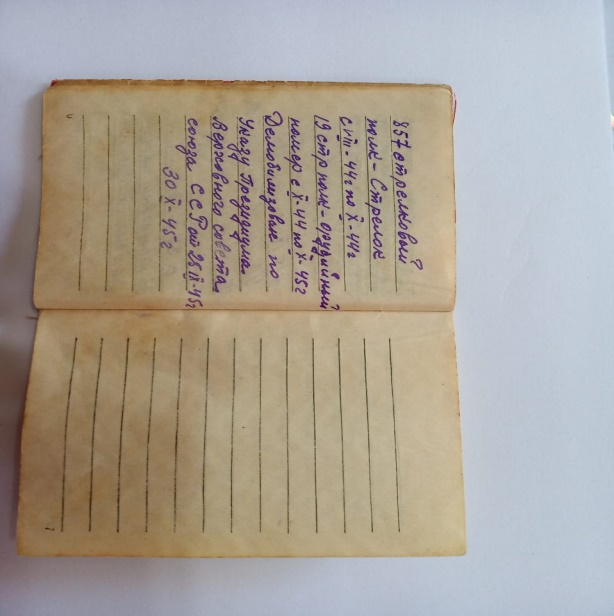 857 стрелковый
полк - Стрелок
с VIII - 44г по X - 44г
19 стр полк - орудийный
номер с X - 44 по X - 45г
Демобилизован по
Указу Президиума
Верховного совета
союза С С Р от 25 IX - 45г
30 X - 45г
6
7